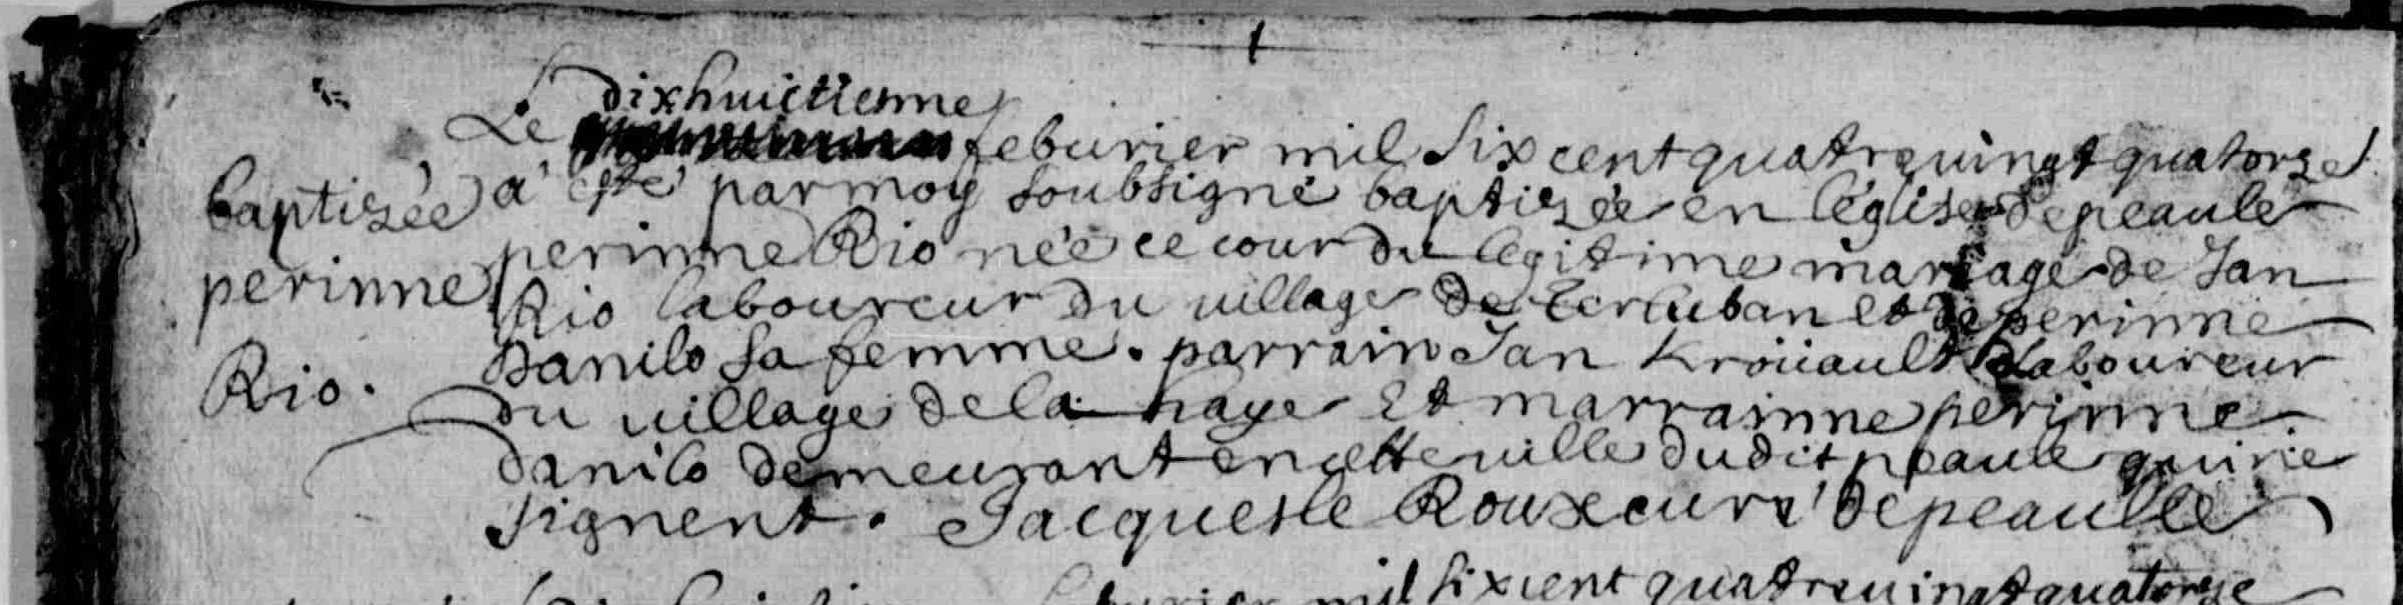 dixhuictienne
Le feburier mil six cent quatreuingt quatorze
baptizée a esté par moy soubsigné baptizée en l'église de peaule
perinne perinne Rio née ce cour du legitime mariage de Jan
Rio laboureur du uillage de Kerluban et de perinne
Rio. Danilo sa femme. parrain Jan Kroüault laboureur
du uillage de la haye Et marrainne perinne
danilo demeurant en cette uille dudit peaule qui ne
signent. Jacques le Roux curé de peaulle
feburier mil six cent quatreuingt quatorze